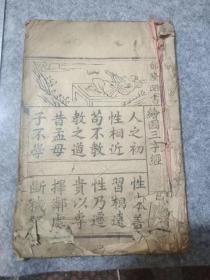 繪圖三字經
人之初 性本善
性相近 習相遠
苟不教 性乃遷
教之道 貴以專
昔孟母 擇鄰處
子不學 斷機